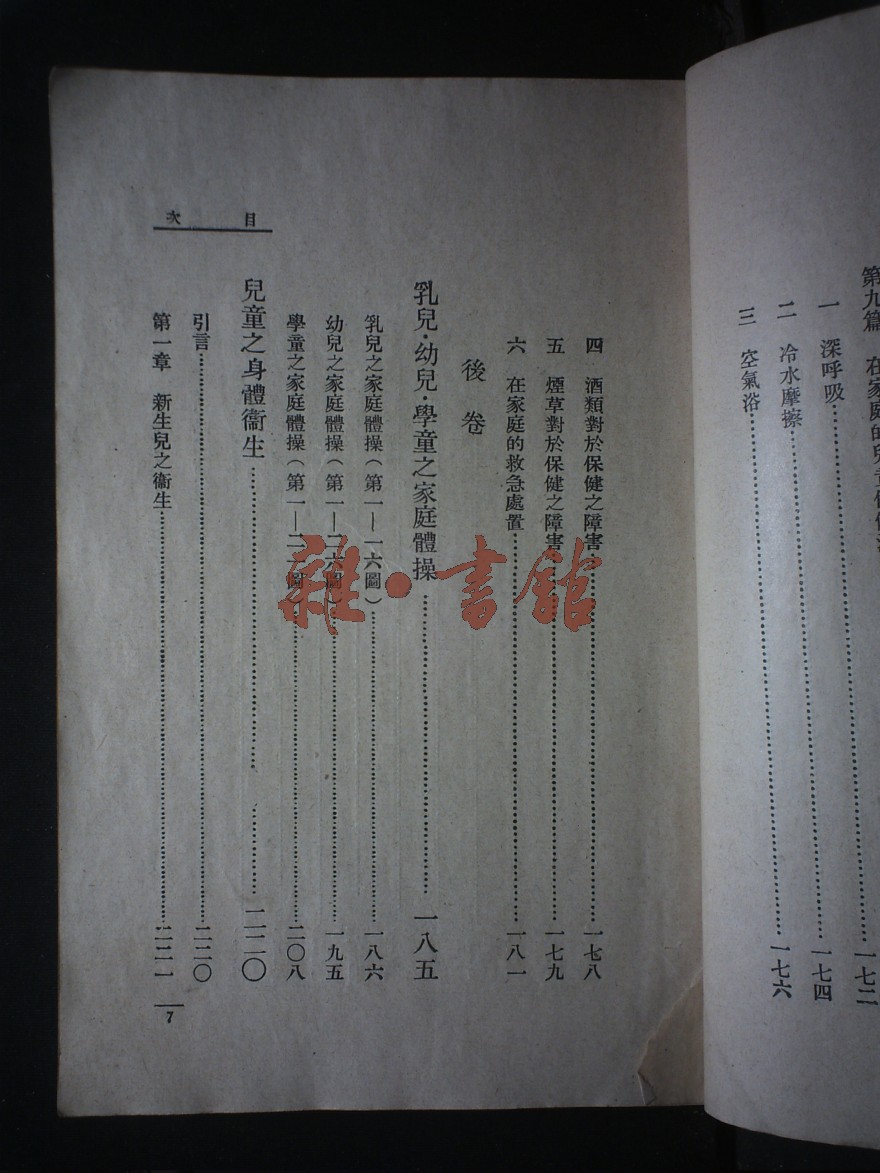 第九篇 在家庭的兒童保健法……一七二
一 深呼吸……一七四
二 冷水摩擦……
三 空氣浴……一七六
四 酒類對於保健之障害……一七八
五 煙草對於保健之障害……一七九
六 在家庭的救急處置……一八一
後卷
乳兒·幼兒·學童之家庭體操……一八五
乳兒之家庭體操(第一—一六圖)……一八六
幼兒之家庭體操(第一—二六圖)……一九五
學童之家庭體操(第一—二一圖)……二〇八
兒童之身體衞生……二二〇
引言……二二〇
第一章 新生兒之衞生……二二一
目次
7
雜·書館